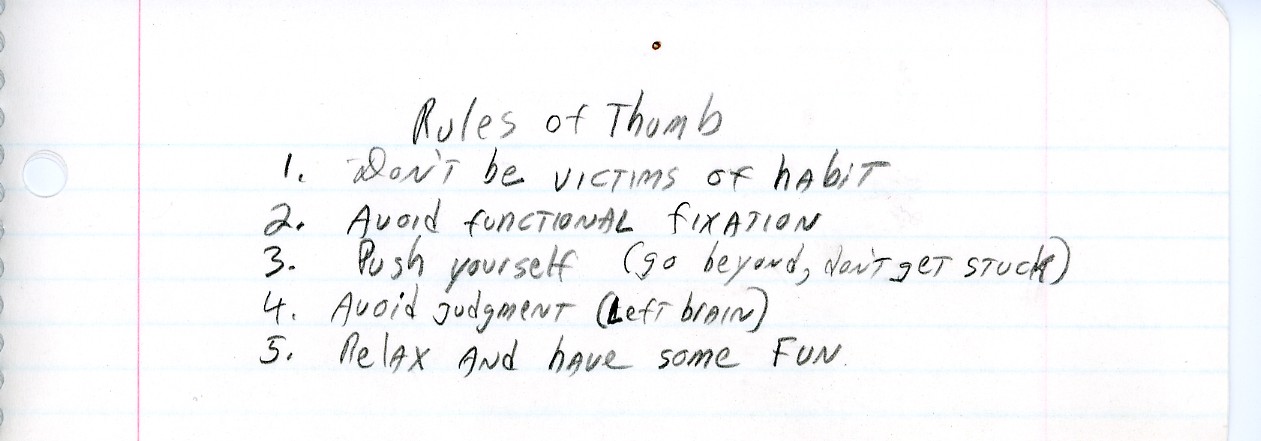 Rules of Thumb
1. Don't be victims of habit
2. Avoid functional fixation
3. Push yourself (go beyond, don't get stuck)
4. Avoid judgment (Left brain)
5. Relax and have some fun.